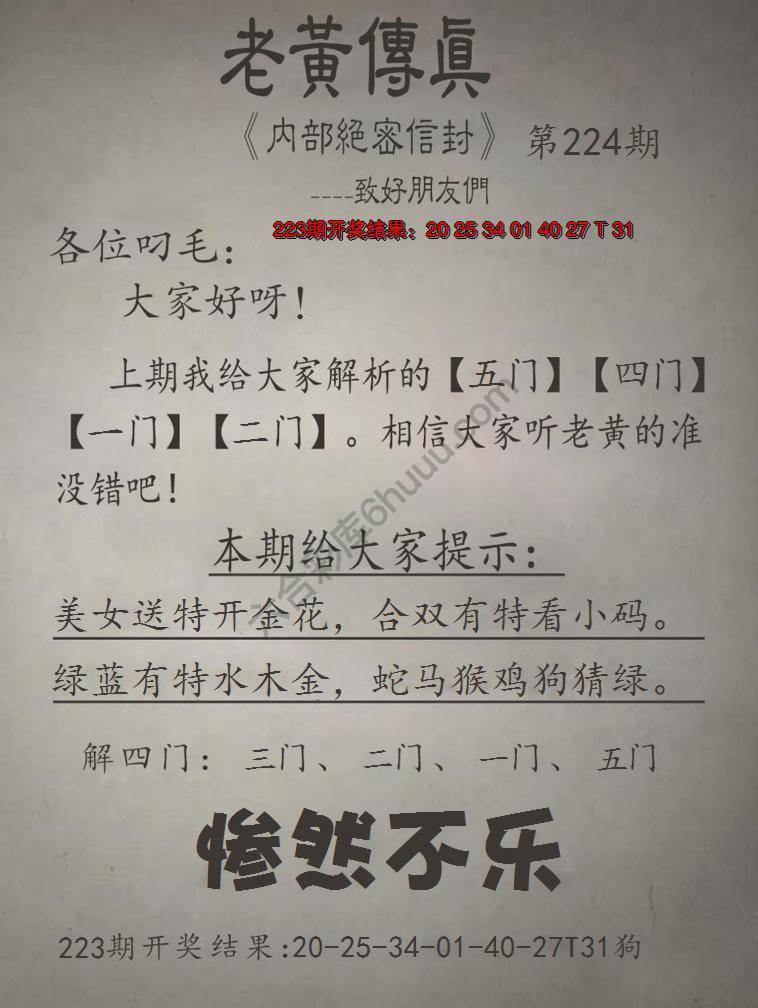 老黃傳眞
《内部絕密信封》 第224期
----致好朋友們
223期开奖结果：20 25 34 01 40 27 T 31
各位叼毛：
大家好呀！
上期我给大家解析的【五门】【四门】
【一门】【二门】。相信大家听老黄的准
没错吧！
本期给大家提示：
美女送特开金花，合双有特看小码。
绿蓝有特水木金，蛇马猴鸡狗猜绿。
解四门： 三门、 二门、 一门、 五门
惨然不乐
223期开奖结果:20-25-34-01-40-27T31狗
六合彩库6huuu.com